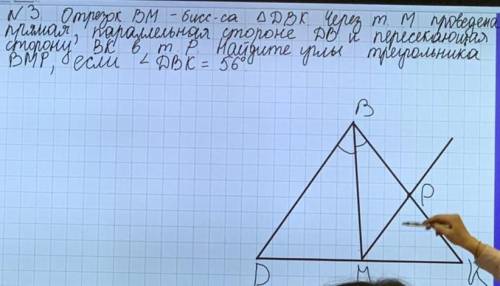 N3. Отрезок BM - бисс-са △DBK. Через т. M проведена
прямая, параллельная стороне DB и пересекающая
сторону BK в т. P. Найдите углы треугольника
BMP, если ∠DBK = 56°
B
P
D
M
K